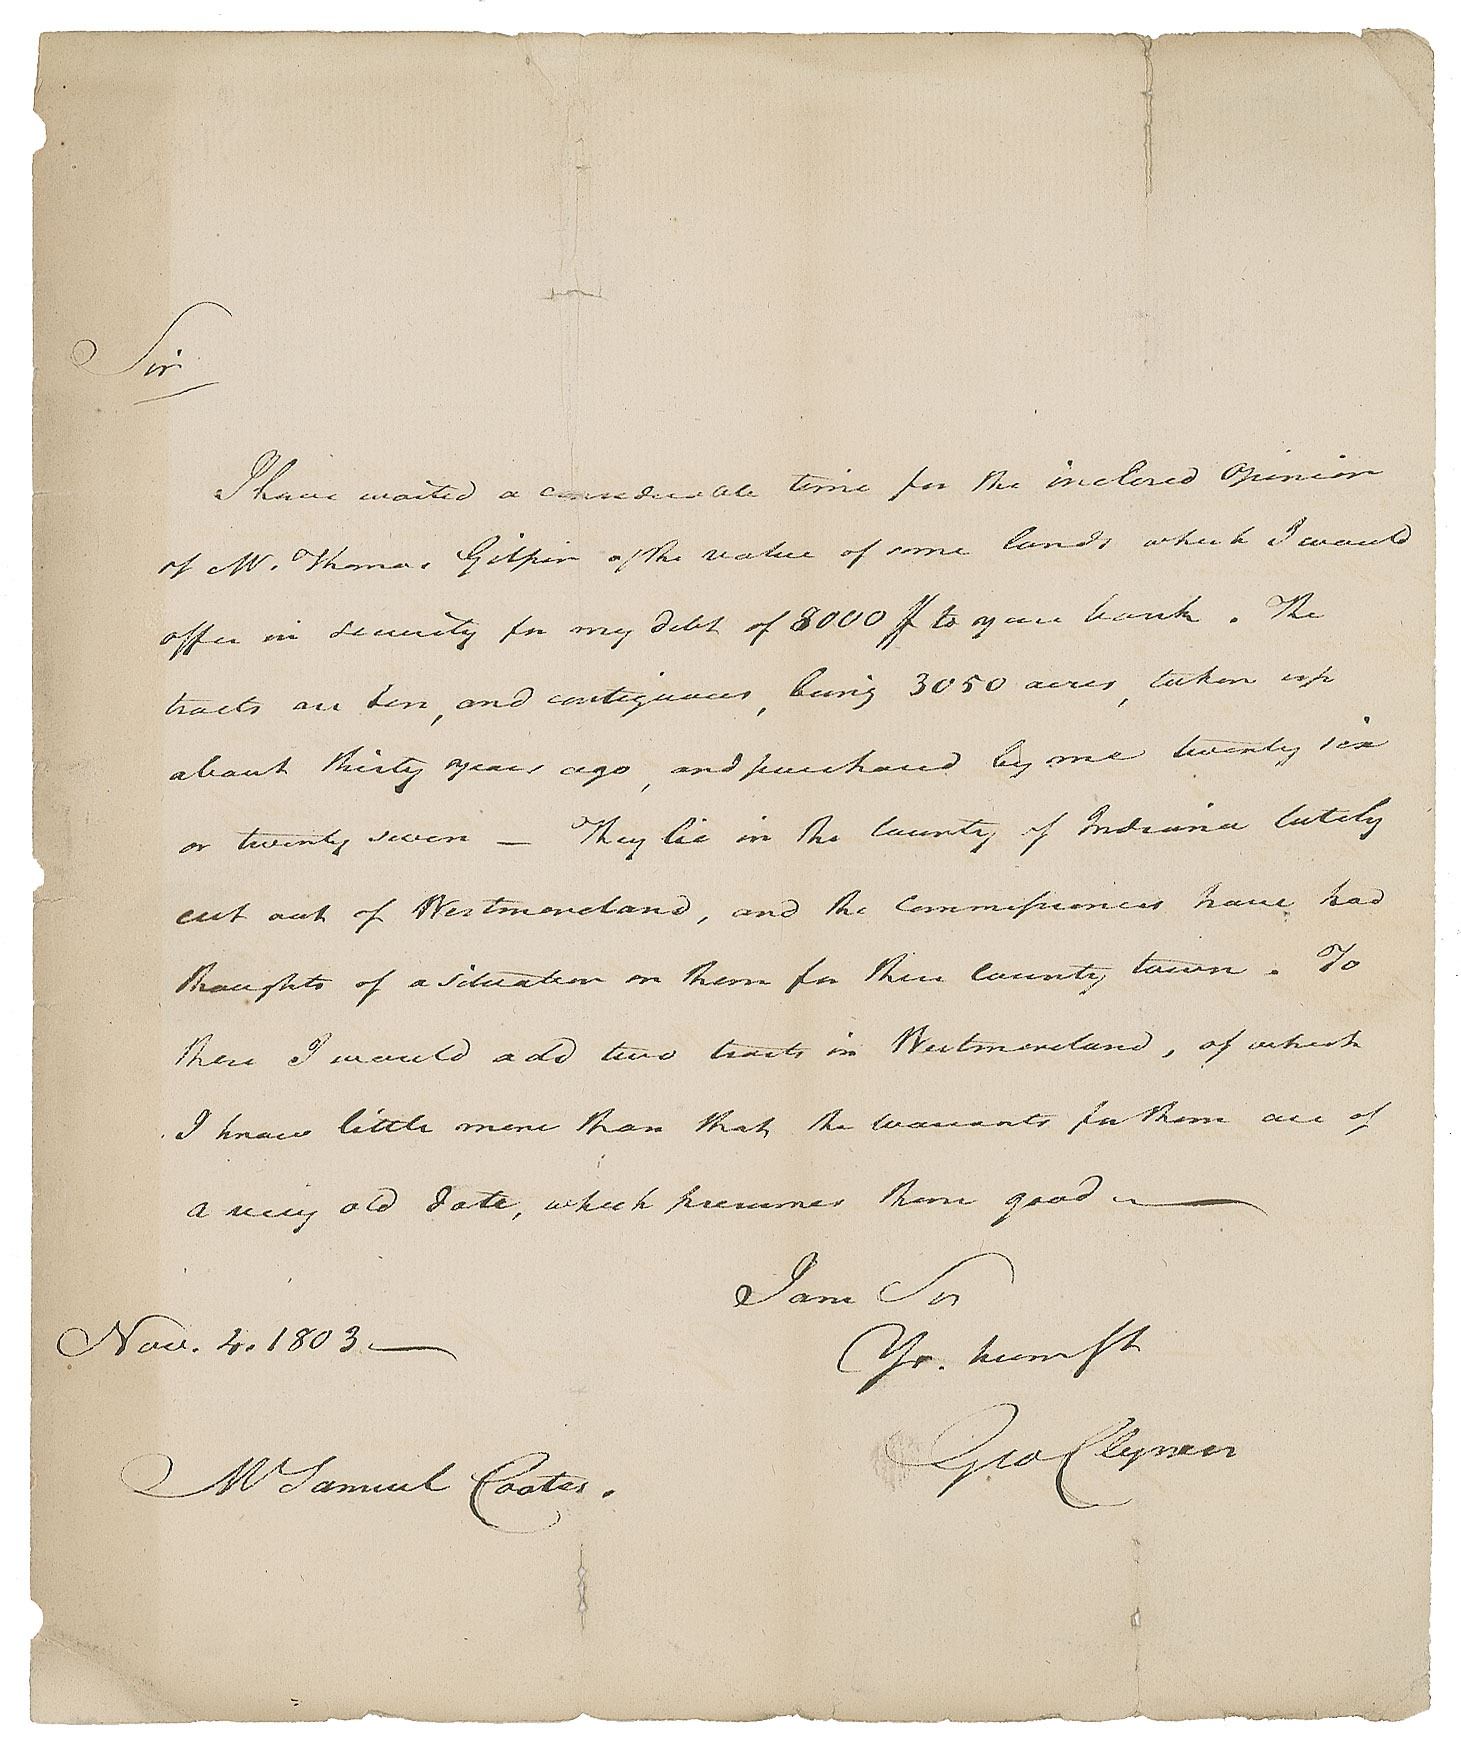 Sir
I have waited a considerable time for the inclosed Opinion
of Mr. Thomas Gilpin of the value of some lands which I would
offer in security for my debt of 8000 $ to your bank. The
tracts are ten, and contiguous, being 3050 acres, taken up
about thirty years ago, and purchased by me twenty six
or twenty seven — They lie in the County of Indiana lately
cut out of Westmoreland, and the Commissioners have had
thoughts of a situation on them for their County town. To
these I would add two tracts in Westmoreland, of which
I know little more than that the warrants for them are of
a very old date, which presumes them good —
I am Sir
Nov. 4. 1803 —
Yr. hum st
Geo Clymer
Mr Samuel Coates.